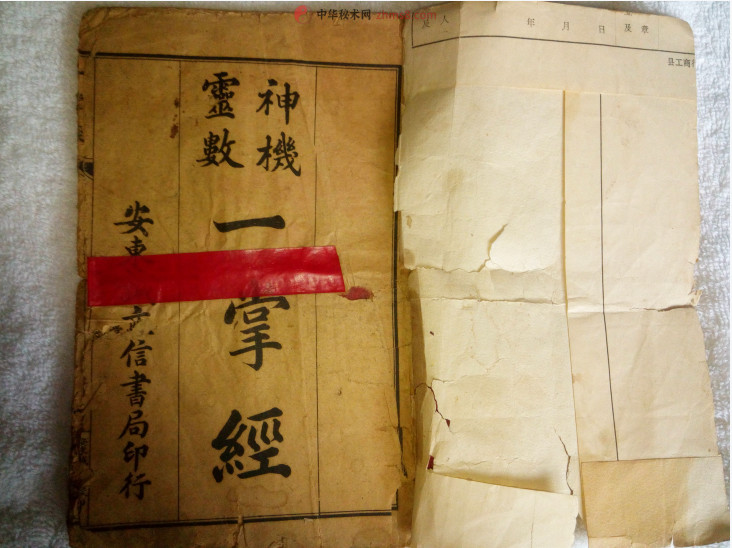 中华秘术网
人 年 月 日 及 章
县工商
神機
靈數
一掌經
安東
文信書局印行